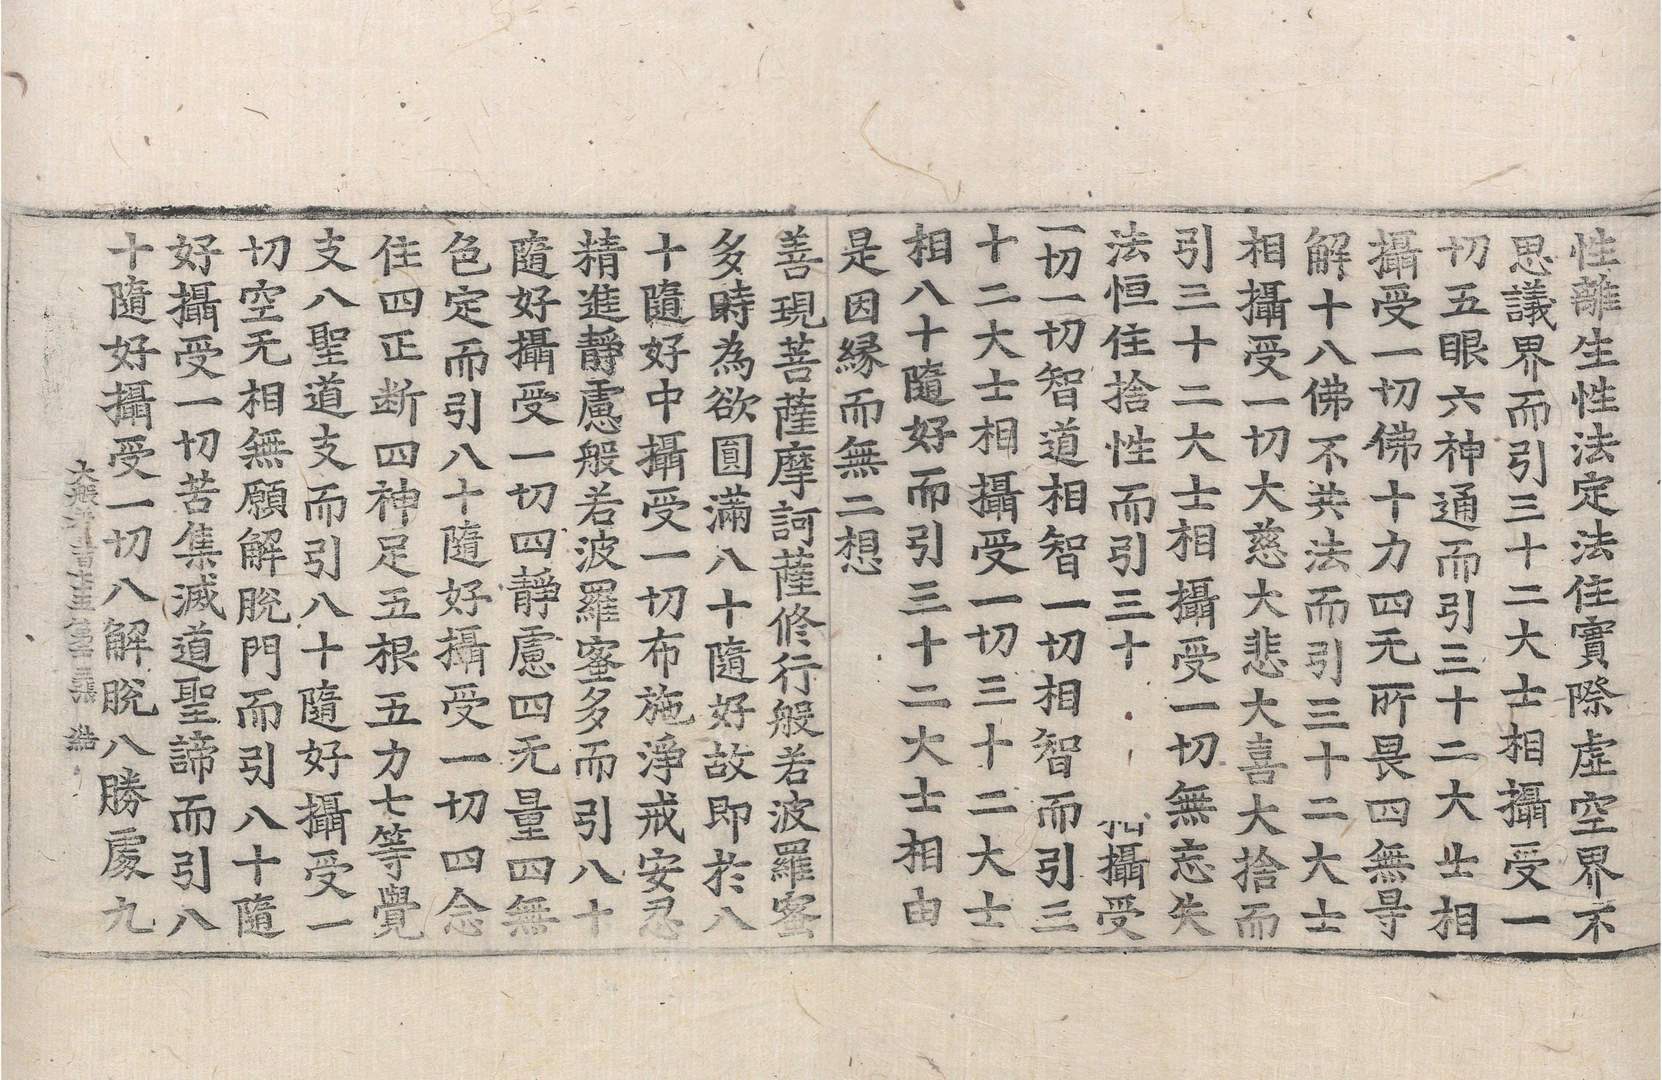 性離生性法定法住實際虛空界不
思議界而引三十二大士相攝受一
切五眼六神通而引三十二大士相
攝受一切佛十力四无所畏四無㝵
解十八佛不共法而引三十二大士
相攝受一切大慈大悲大喜大捨而
引三十二大士相攝受一切無忘失
法恒住捨性而引三十相攝受
一切一切智道相智一切相智而引三
十二大士相攝受一切三十二大士
相八十隨好而引三十二大士相由
是因緣而無二想
善現菩薩摩訶薩修行般若波羅蜜
多時為欲圓滿八十隨好故即於八
十隨好中攝受一切布施淨戒安忍
精進靜慮般若波羅蜜多而引八十
隨好攝受一切四靜慮四无量四無
色定而引八十隨好攝受一切四念
住四正断四神足五根五力七等覺
支八聖道支而引八十隨好攝受一
切空无相無願解脫門而引八十隨
好攝受一切苦集滅道聖諦而引八
十隨好攝受一切八解脫八勝處九